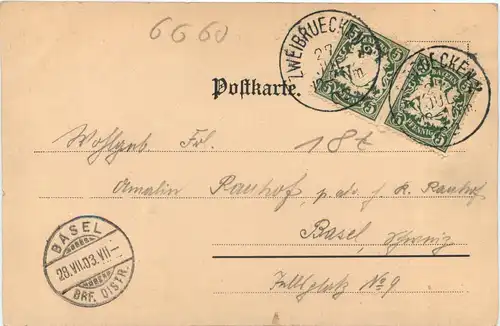 6660
ZWEIBRUECKEN
27
Vm
BRUECKEN
5 5
PFENNIG
Postkarte.
Wohlgeb Frl.
18t
Amalin Rauhof, p. adr. J. R. Rauhof
Basel, Schweiz
No 9
BASEL
28.VII.03.VII-
BRF. DISTR.